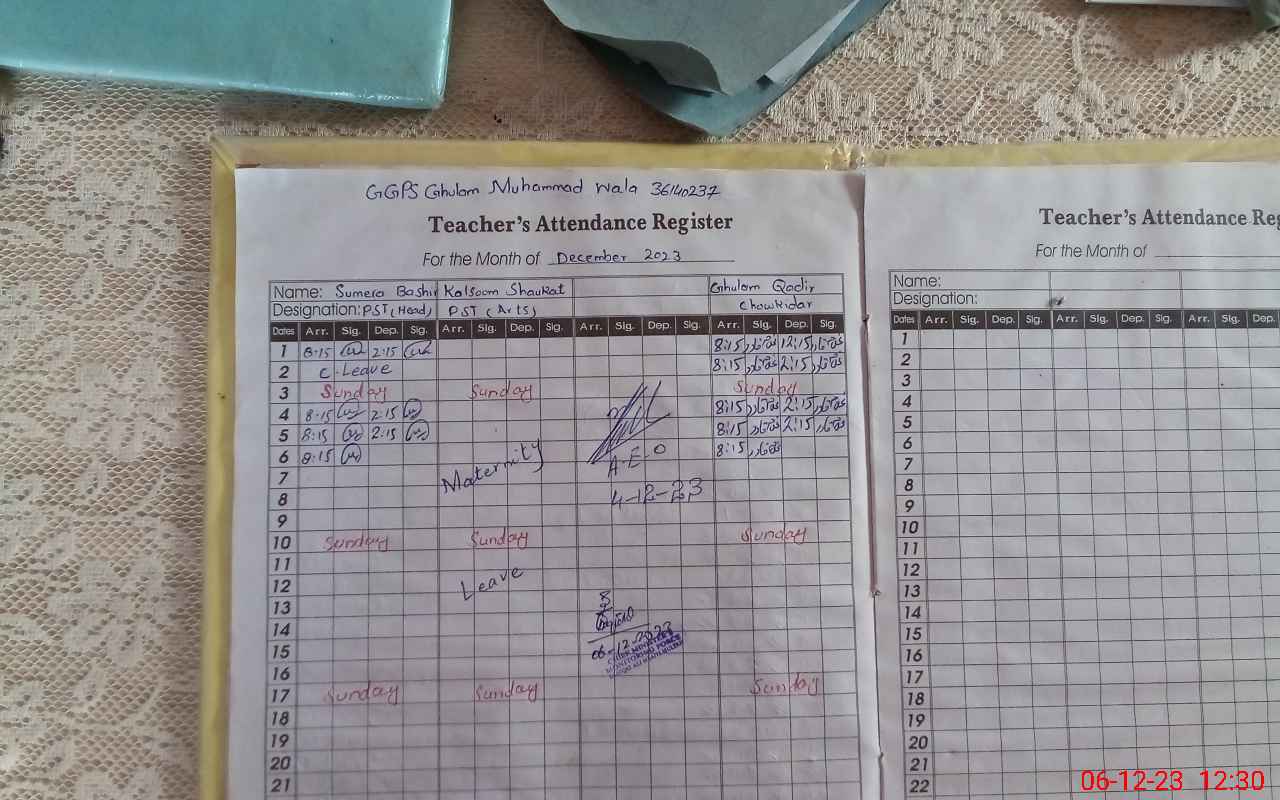 GGPS Ghulam Muhammad Wala 36140237
Teacher's Attendance Register
For the Month of December 2023
Name: Sumera Bashir Kalsoom Shaukat Ghulam Qadir
Designation: PST (Head) PST (Arts) Chowkidar
Dates Arr. Sig. Dep. Sig. Arr. Sig. Dep. Sig. Arr. Sig. Dep. Sig. Arr. Sig. Dep. Sig.
1 8:15 2:15 8:15 12:15
2 C. Leave 8:15 2:15
3 Sunday Sunday Sunday
4 8:15 2:15 8:15 2:15
5 8:15 2:15 8:15 2:15
6 8:15 8:15
Maternity
A.E.O
7
8 4-12-23
9
10 Sunday Sunday Sunday
11
12 Leave
13
14
15 06-12-2023
CHIEF MINISTER'S
MONITORING FORCE
16
17 Sunday Sunday Sunday
18
19
20
21
Teacher's Attendance Reg
For the Month of
Name:
Designation:
Dates Arr. Sig. Dep. Sig. Arr. Sig. Dep. Sig. Arr. Sig. Dep.
1
2
3
4
5
6
7
8
9
10
11
12
13
14
15
16
17
18
19
20
21
22
06-12-23 12:30